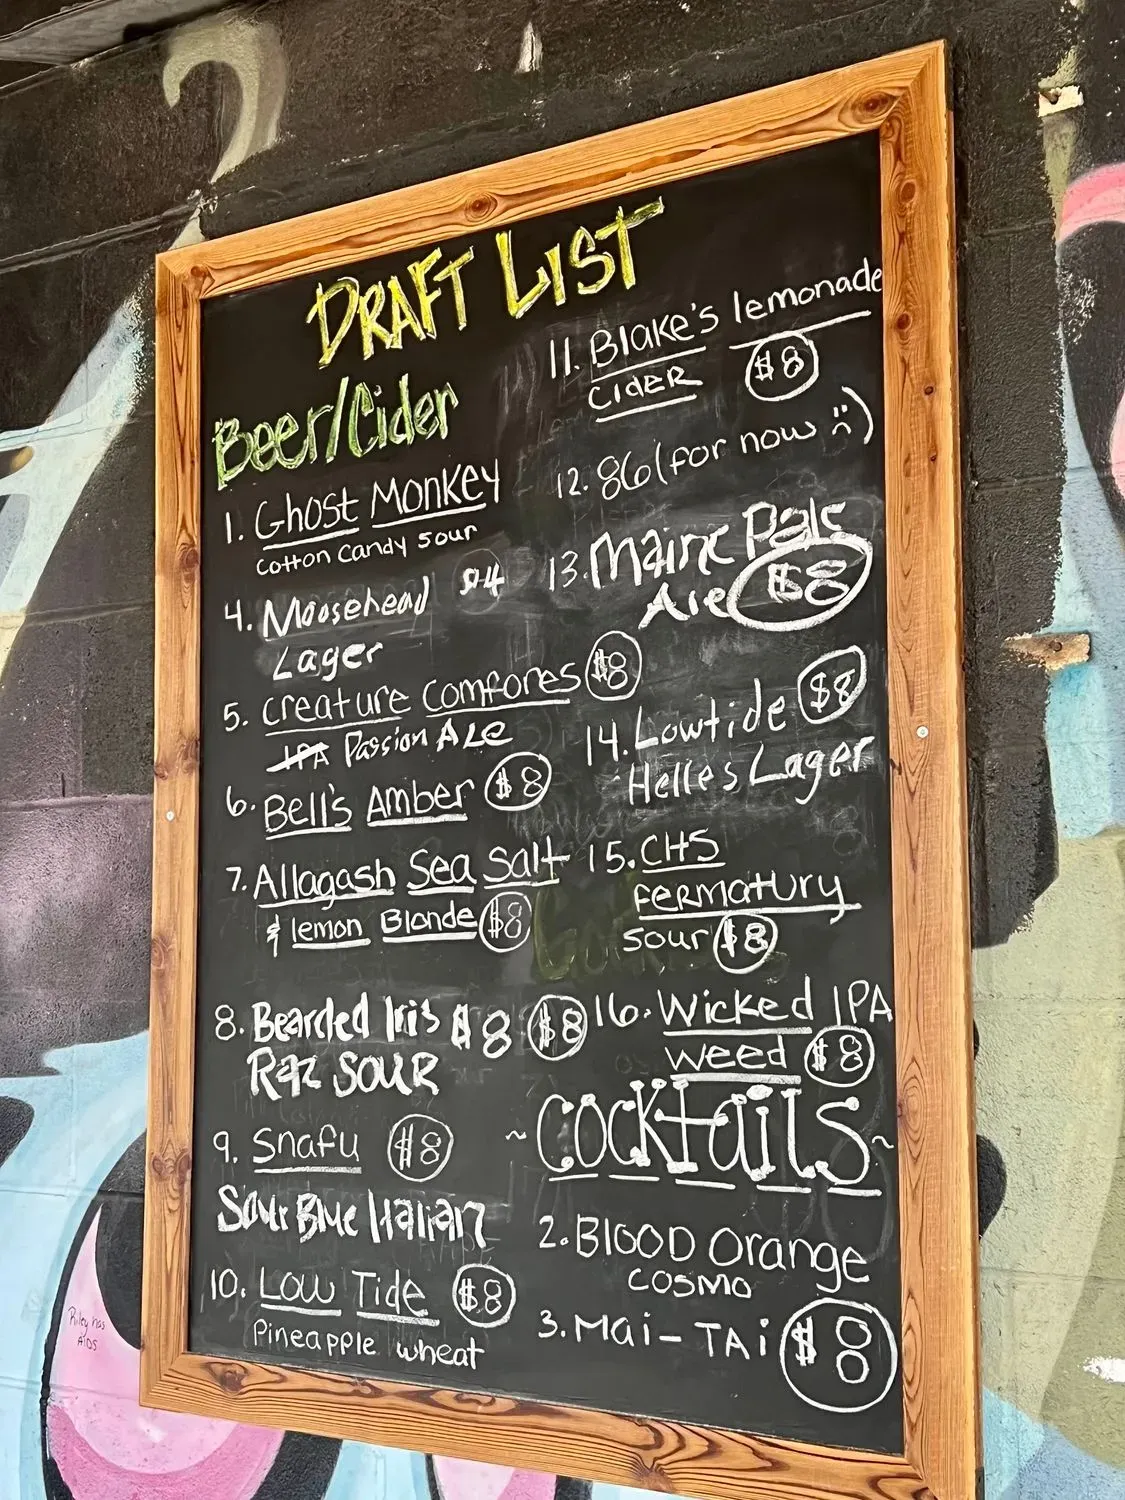 DRAFT LIST
Beer/Cider
1. Ghost Monkey
Cotton Candy Sour
4. Moosehead $4
Lager
5. Creature Comfores $8
IPA Passion Ale
6. Bell's Amber $8
7. Allagash Sea Salt
& lemon Blonde $8
8. Bearded Iris $8 $8
Raz SOUR
9. Snafu $8
Sour Blue Italian
10. Low Tide $8
Pineapple wheat
11. Blake's lemonade
CIDER $8
12. 86 (for now :( )
13. Maine Pale
Ale $8
14. Lowtide $8
Helles Lager
15. CHS
fermatury
sour $8
16. Wicked IPA
weed $8
~ COCKTAILS ~
2. BLOOD Orange
COSMO
3. Mai-TAi $8
Riley has
AIDS